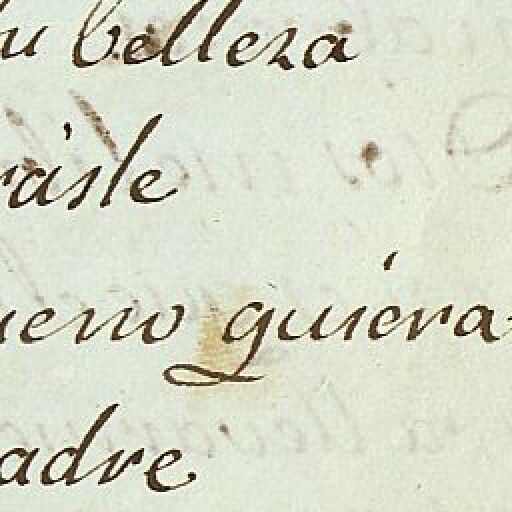 tu belleza
raste
ueno quiera
adre